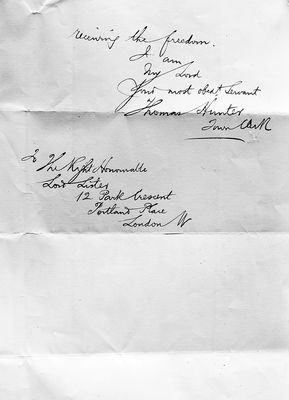 receiving the freedom.
I am
My Lord
Your most obedt Servant
Thomas Hunter
Town Clerk
To
The Right Honourable
Lord Lister
12 Park Crescent
Portland Place
London W